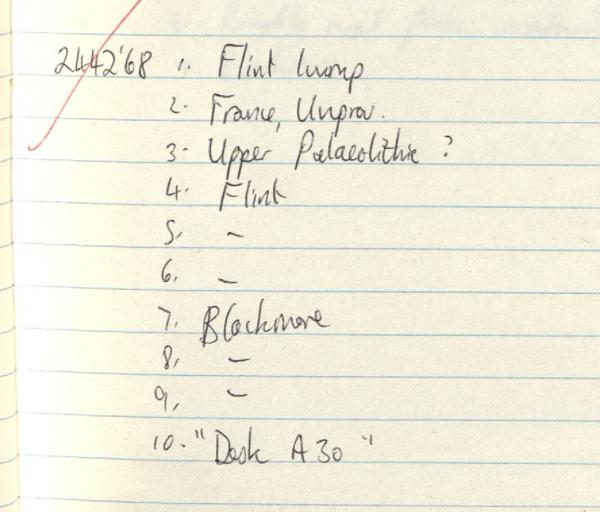 2442'68 1. Flint lump
2. France, Unprov.
3. Upper Palaeolithic ?
4. Flint
5. –
6. –
7. Blackmore
8. –
9. –
10. "Desk A30"